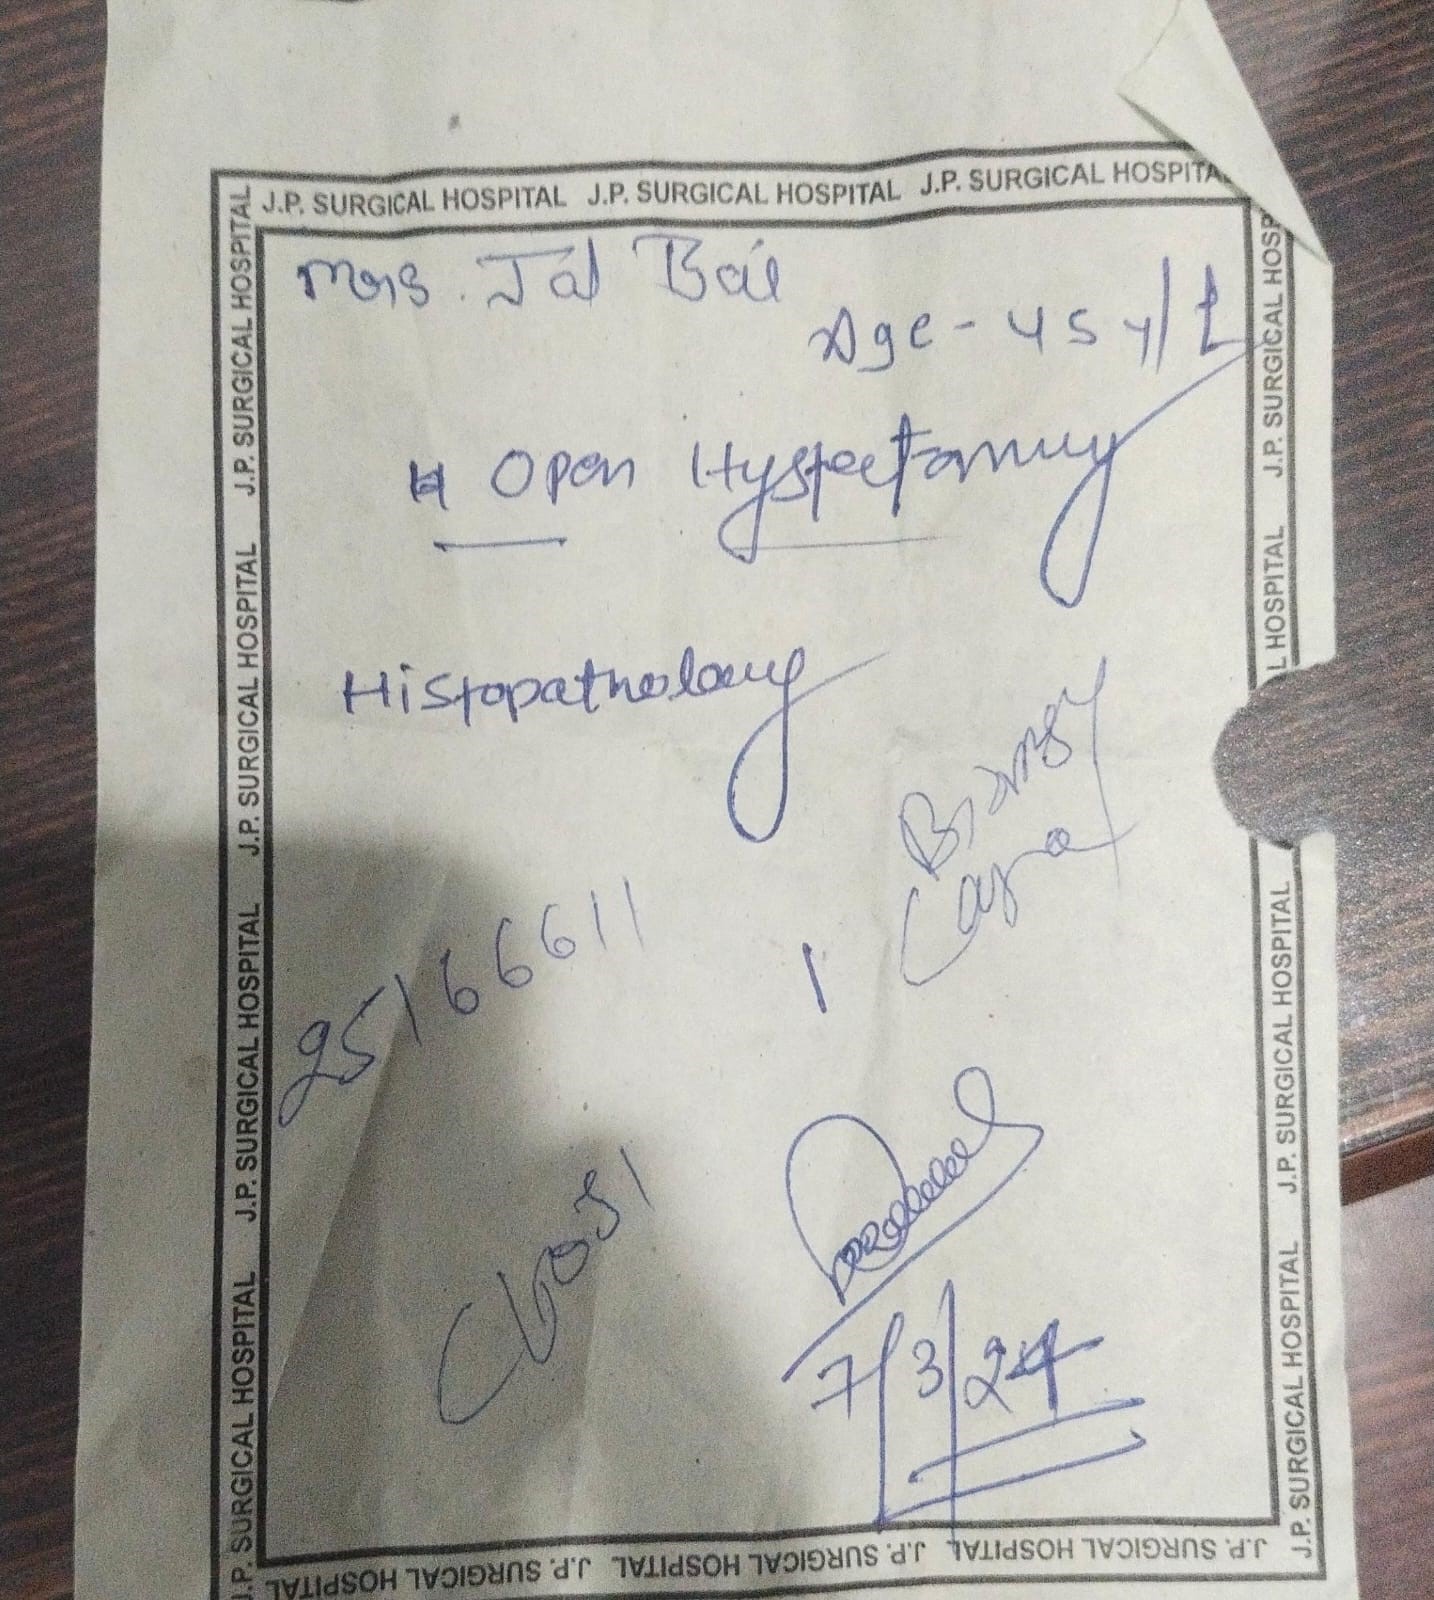 J.P. SURGICAL HOSPITAL J.P. SURGICAL HOSPITAL J.P. SURGICAL HOSPITA
Mrs. Tal Bai
Age - 45 y/
Open Hystectomy
Histopathology
Biopsy
95166611
1
7/3/24
J.P. SURGICAL HOSPITAL J.P. SURGICAL HOSPITAL J.P. SURGICAL HOSPITAL J.P. SURGICAL HOSPITAL
J.P. SURGICAL HOSP L HOSPITAL J.P. SURGICAL HOSPITAL J.P. SURGICAL HOSPITAL
J.P. SURGICAL HOSPITAL J.P. SURGICAL HOSPITAL J.P. SURGICAL HOSPITAL